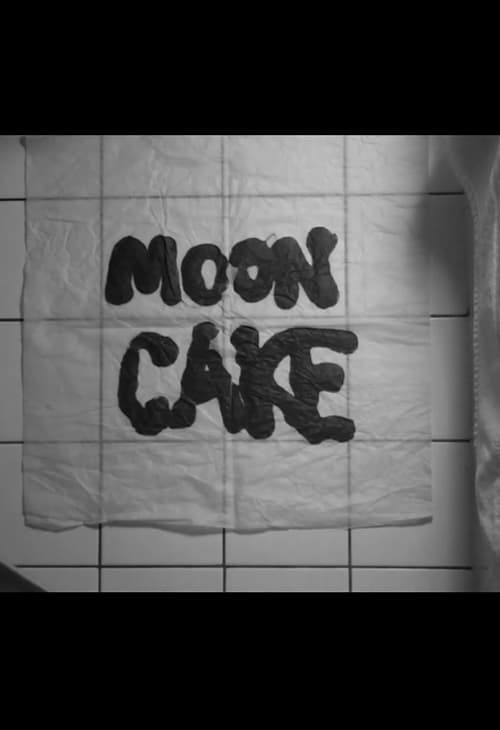 MOON
CAKE